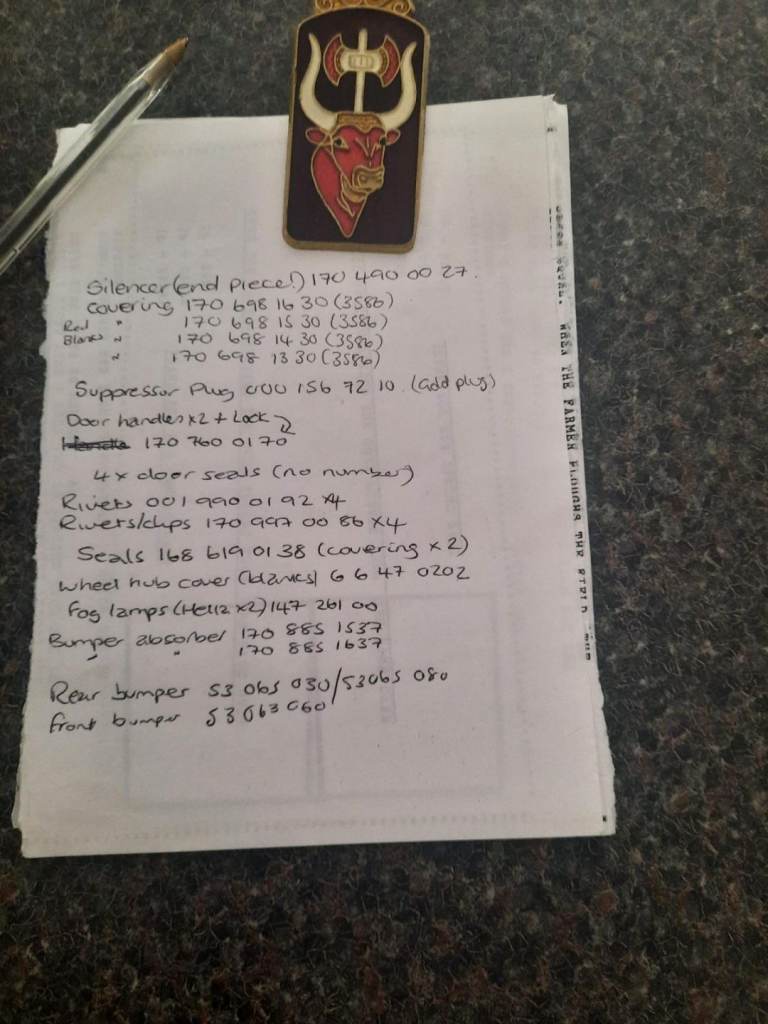 Silencer (end piece!) 170 490 00 27.
covering 170 698 16 30 (3586)
Red " 170 698 15 30 (3586)
" 170 698 14 30 (3586)
" 170 698 13 30 (3586)
Suppressor Plug 000 156 72 10. (add plug)
Door handles x2 + Lock
170 760 01 70
4 x door seals (no number)
Rivets 001 990 01 92 x4
Rivets/clips 170 997 00 86 x4
Seals 168 619 01 38 (covering x 2)
wheel hub cover 6 6 47 0202
Fog lamps (Hella x2) 147 261 00
Bumper absorber 170 885 1537
" " 170 885 1637
Rear bumper 53 065 030/53065 080
front bumper 53 063 060
WHEN THE FARMER PLOUGHS THE FIELD